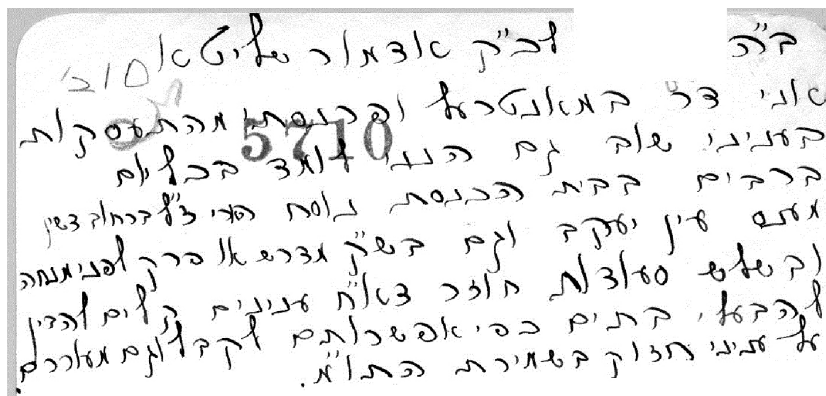 ב"ה לכ"ק אדמור שליטא
אני דר במאנטרעל ופרנסתי מהתעסקות
5710
בעניני שוב גם הנני לומד בכל יום
ברבים בבית הכנסת נוסח הארי ז"ל ברחוב
מעט עין יעקב וגם בש"ק מדרש או פרק לפני מנחה
ובשלש סעודות חוזר דא"ח ענינים קלים להבין
להבעלי בתים כפי אפשרותם לקבל וגם מעוררם
על עניני חזוק בשמירת התומ"צ.